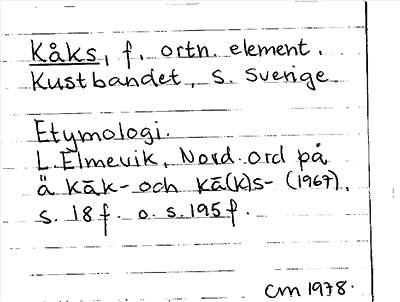 Kåks, f. ortn. element.
Kustbandet, s. Sverige
Etymologi.
L. Elmevik, Nord. ord på
ä kāk- och kā(k)s- (1967).
s. 18 f. o. s. 195 f.
CM 1978.